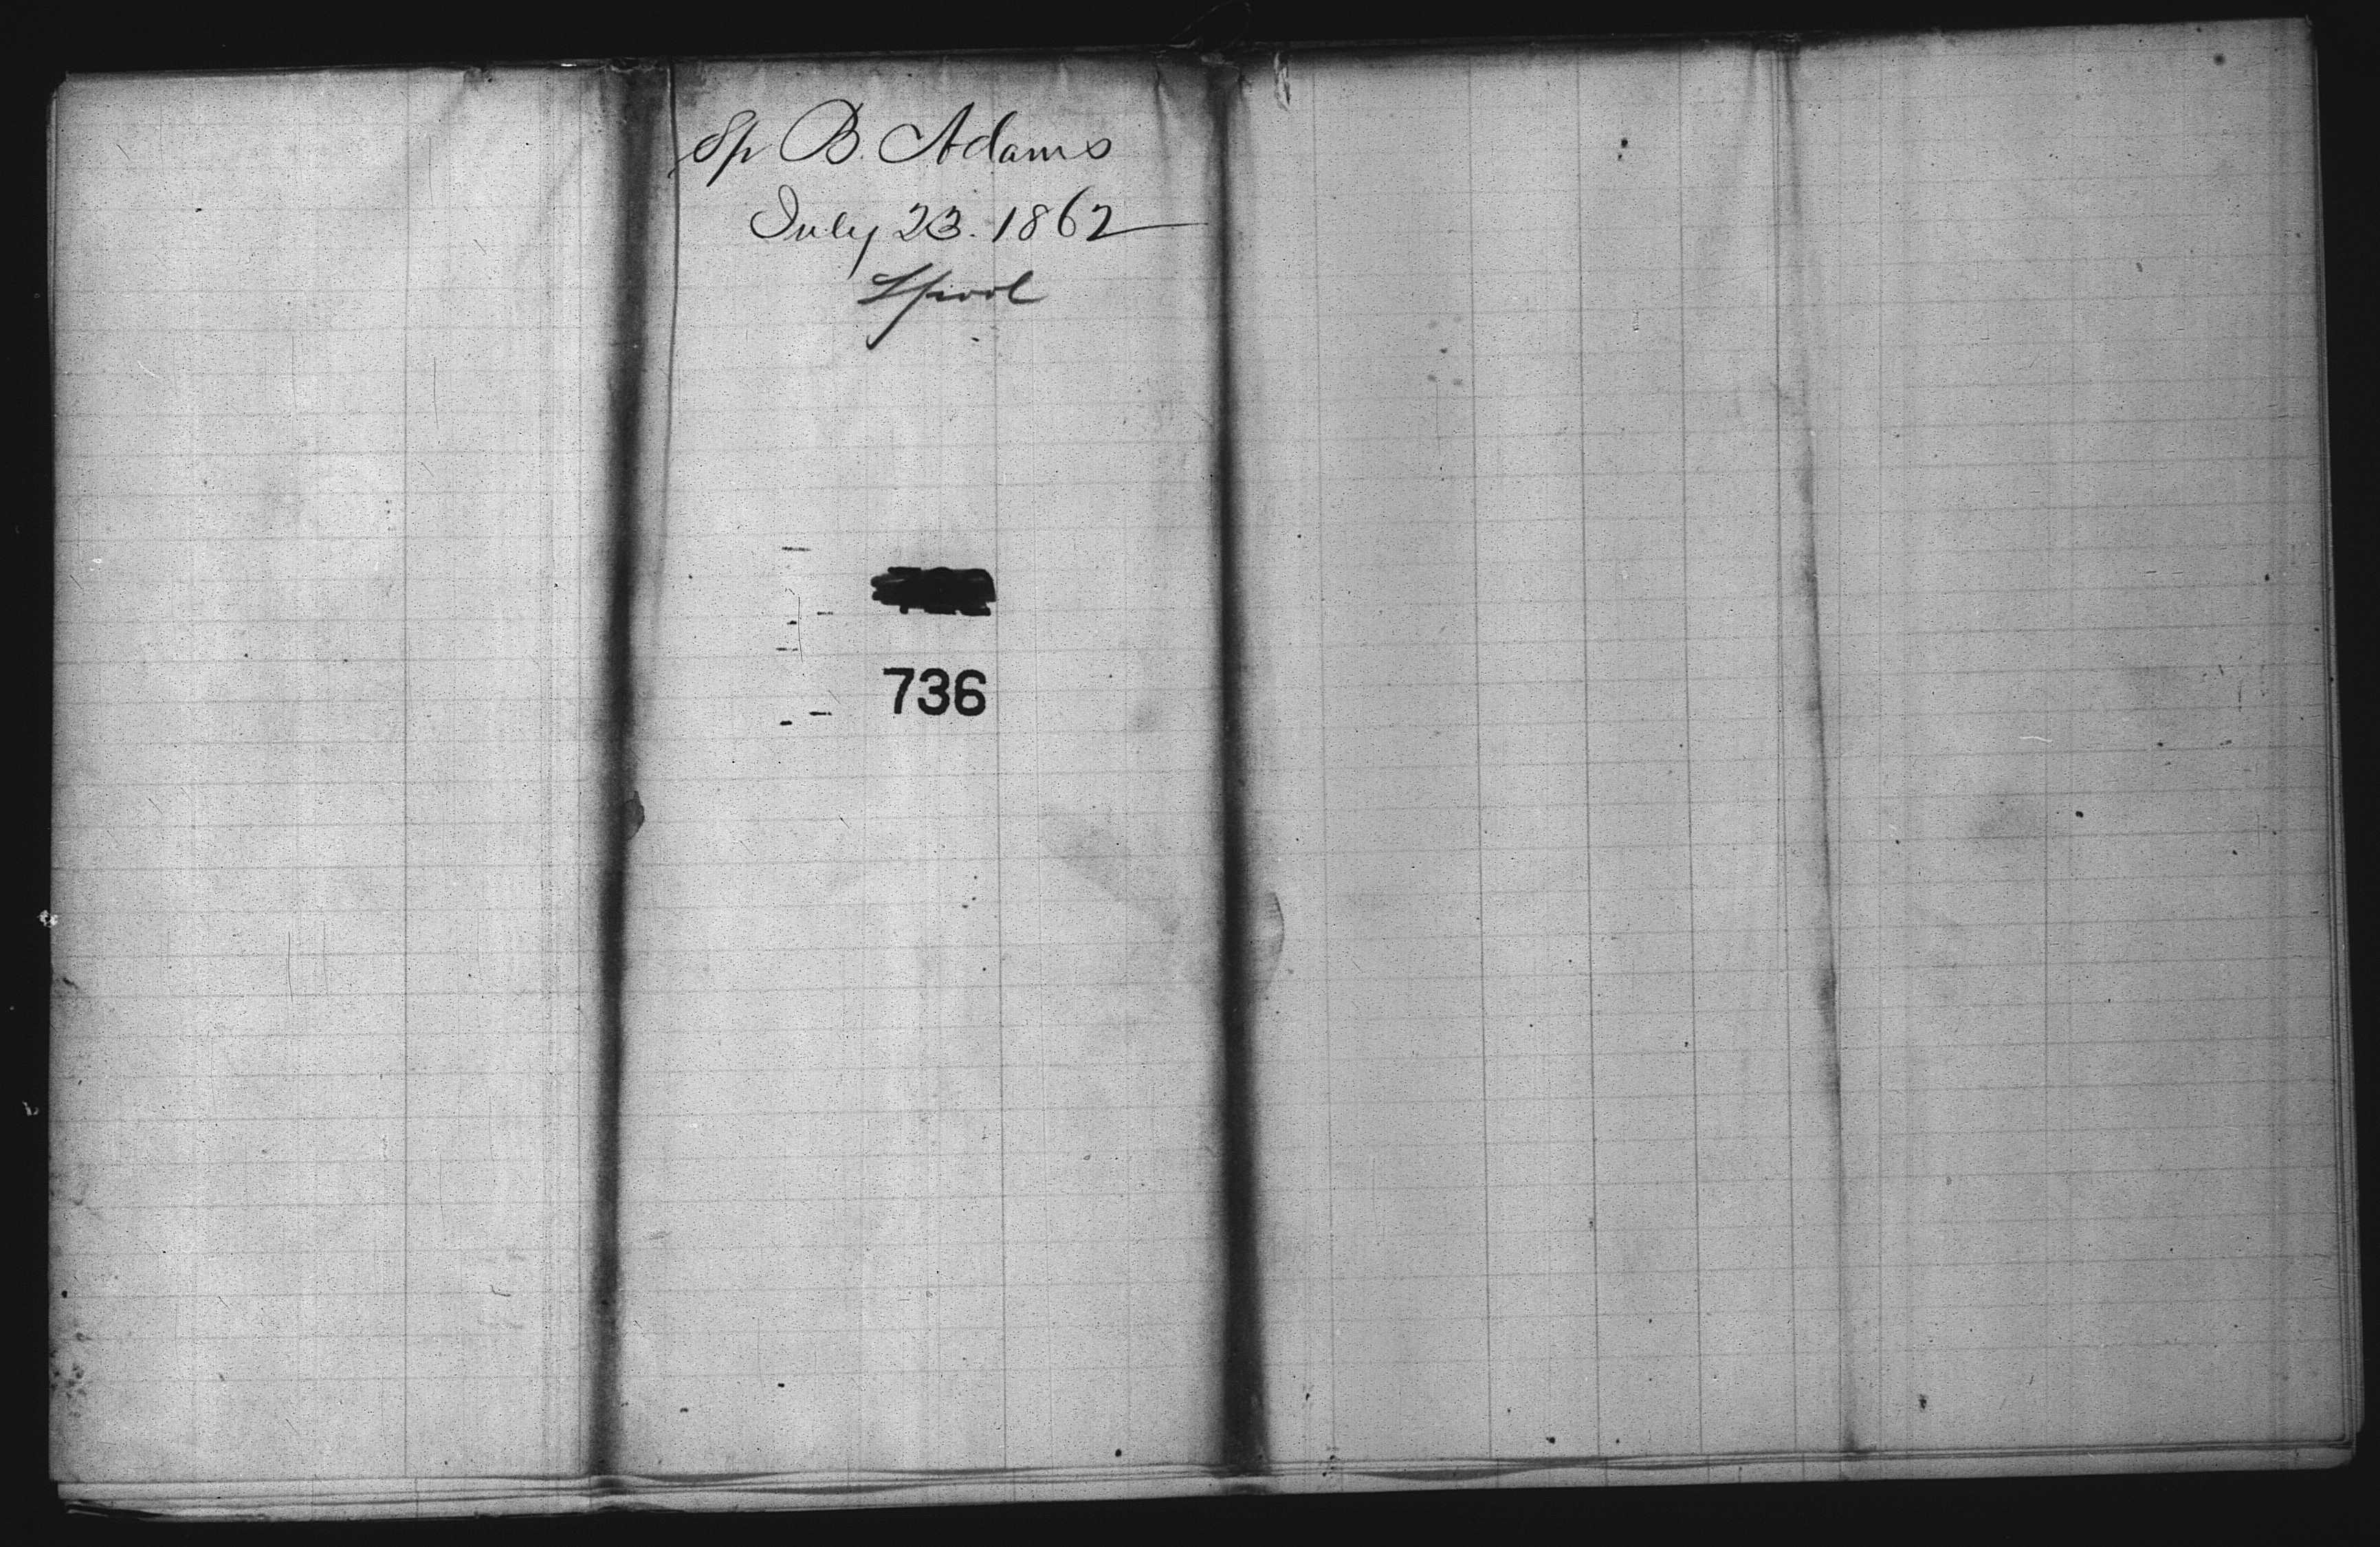 Sp B. Adams
July 23. 1862
Lpool
736